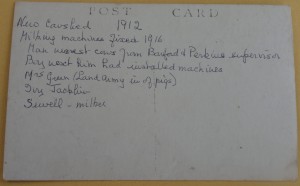 POST CARD
New Cowshed 1912
Milking machines fixed 1916
Man nearest cows from Barford & Perkins supervisor
Boy next him had installed machines
Mrs Gunn (Land Army in of pigs)
Ivy Jacklin
Sewell - milker